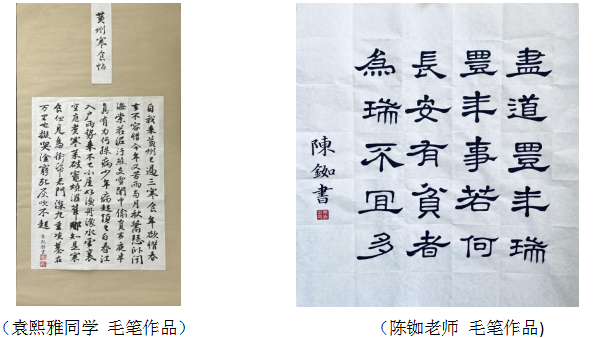 黄州寒食帖
自我来黄州已過三寒食年欲惜春
去不容惜今年又苦雨兩月秋蕭瑟卧聞
海棠花泥汙燕支雪闇中偷負去夜半
真有力何殊病少年病起頭已白春江
入户雨勢来不已小屋如漁舟濛水雲裏
空庖煮寒菜破竈燒濕葦那知是寒
食但見烏銜帋君門深九重墳墓在
万里也擬哭塗窮死灰吹不起
盡道豊年瑞
豊年事若何
長安有貧者
為瑞不宜多
陳銣書
（袁熙雅同学 毛笔作品）
（陈铷老师 毛笔作品)